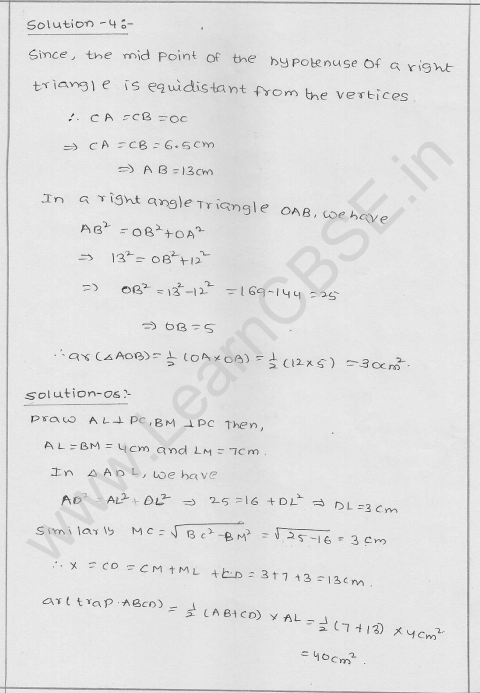 Solution -4:-
Since, the mid point of the hypotenuse of a right
triangle is equidistant from the vertices
∴ CA = CB = OC
⇒ CA = CB = 6.5cm
⇒ AB = 13cm
In a right angle Triangle OAB, we have
AB² = OB² + OA²
⇒ 13² = OB² + 12²
⇒ OB² = 13² - 12² = 169 - 144 = 25
⇒ OB = 5
∴ ar(△AOB) = 1/2 (OA × OB) = 1/2 (12 × 5) = 30cm².
Solution-05:-
Draw AL ⊥ DC, BM ⊥ DC Then,
AL = BM = 4cm and LM = 7cm.
In △ADL, we have
AD² = AL² + DL² ⇒ 25 = 16 + DL² ⇒ DL = 3cm
Similarly MC = √BC² - BM² = √25 - 16 = 3cm
∴ X = CD = CM + ML + LD = 3 + 7 + 3 = 13cm.
ar(trap.ABCD) = 1/2 (AB + CD) × AL = 1/2 (7 + 13) × 4cm²
= 40cm².
www.LearnCBSE.in